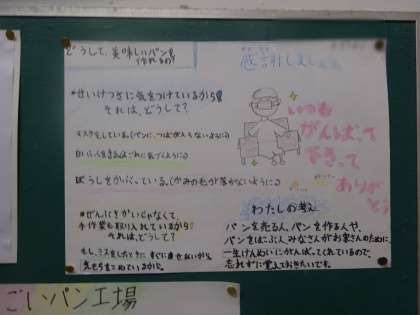 どうして、美味しいパンを
作れるの?
*せいけつさに気をつけているから!!
それは、どうして?
マスクをしている。(パンに、つばが入らないように)
白い
ぼうしをかぶっている。(かみの毛が落ちないように)
*ぜんじどうかじゃなくて、
手作業も取り入れているから!
それは、どうして?
もし、ミスをしたときに すぐに直せないから
気もちをこめているから。
感謝しまし
いつも
がんばって
下さって
ありがとう
わたしの考え
パンを売る人、パンを作る人や、
パンをはこぶ人 みなさんがお客さんのために、
一生けんめいにがんばってくれているので、
忘れずに覚えておきたいです。
ごいパン工場